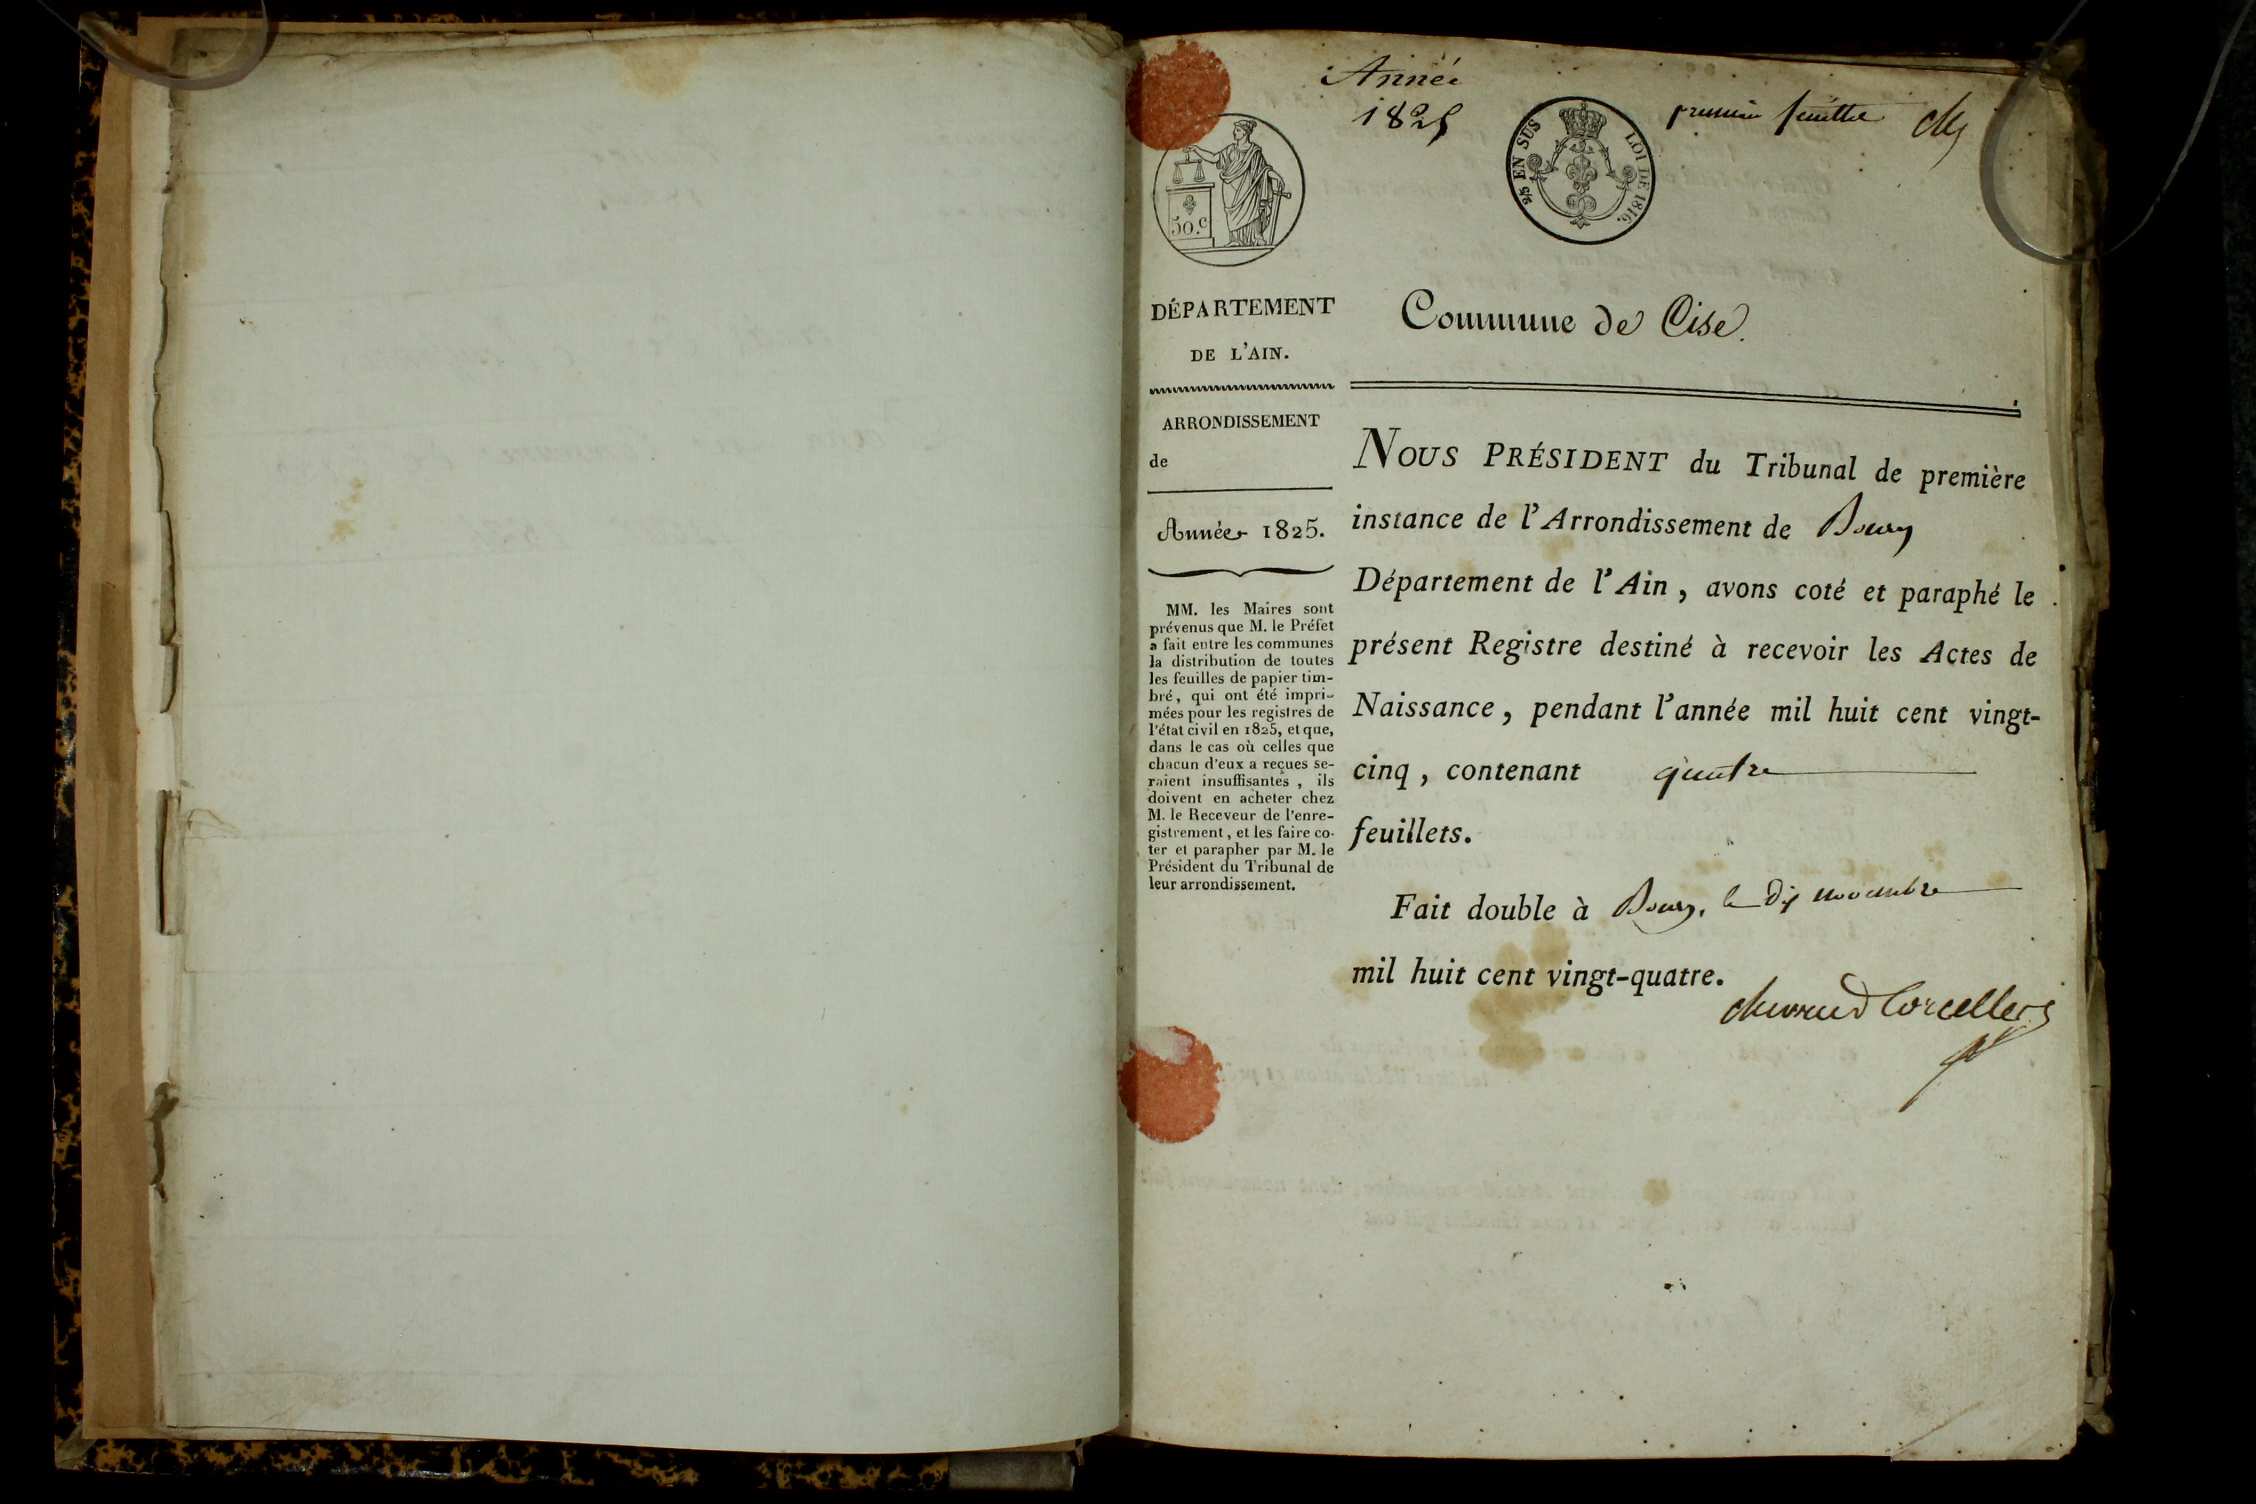 Année
1825
premier feuillet
50.c
2/5 EN SUS
LOI DE 1816.
DÉPARTEMENT
DE L'AIN.
ARRONDISSEMENT
de
Année 1825.
MM. les Maires sont
prévenus que M. le Préfet
a fait entre les communes
la distribution de toutes
les feuilles de papier tim-
bré, qui ont été impri-
mées pour les registres de
l'état civil en 1825, et que,
dans le cas où celles que
chacun d'eux a reçues se-
raient insuffisantes, ils
doivent en acheter chez
M. le Receveur de l'enre-
gistrement, et les faire co-
ter et parapher par M. le
Président du Tribunal de
leur arrondissement.
Commune de Cise.
NOUS PRÉSIDENT du Tribunal de première
instance de l'Arrondissement de Bourg
Département de l'Ain, avons coté et paraphé le
présent Registre destiné à recevoir les Actes de
Naissance, pendant l'année mil huit cent vingt-
cinq, contenant quatre
feuillets.
Fait double à Bourg, le dix novembre
mil huit cent vingt-quatre.